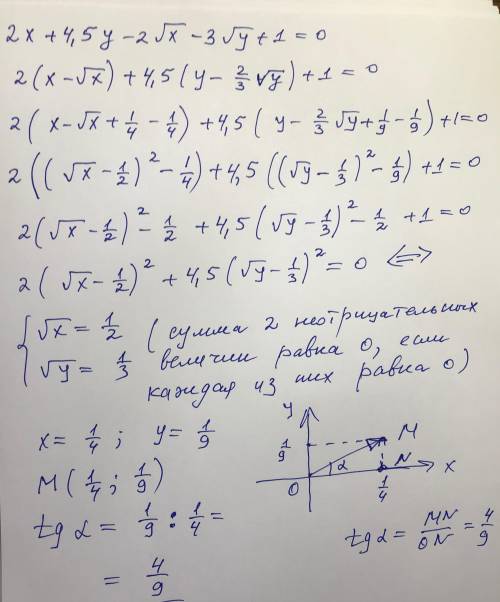 2x + 4,5y - 2√x - 3√y + 1 = 0
2(x - √x) + 4,5(y - 2/3 √y) + 1 = 0
2(x - √x + 1/4 - 1/4) + 4,5(y - 2/3 √y + 1/9 - 1/9) + 1 = 0
2((√x - 1/2)² - 1/4) + 4,5((√y - 1/3)² - 1/9) + 1 = 0
2(√x - 1/2)² - 1/2 + 4,5(√y - 1/3)² - 1/2 + 1 = 0
2(√x - 1/2)² + 4,5(√y - 1/3)² = 0 <=>
{ √x = 1/2
√y = 1/3
(сумма 2 неотрицательных
величин равна 0, если
каждая из них равна 0)
x = 1/4 ; y = 1/9
M(1/4 ; 1/9)
tg α = 1/9 : 1/4 =
= 4/9
y
1/9
M
α
N
x
O
1/4
tg α = MN/ON = 4/9